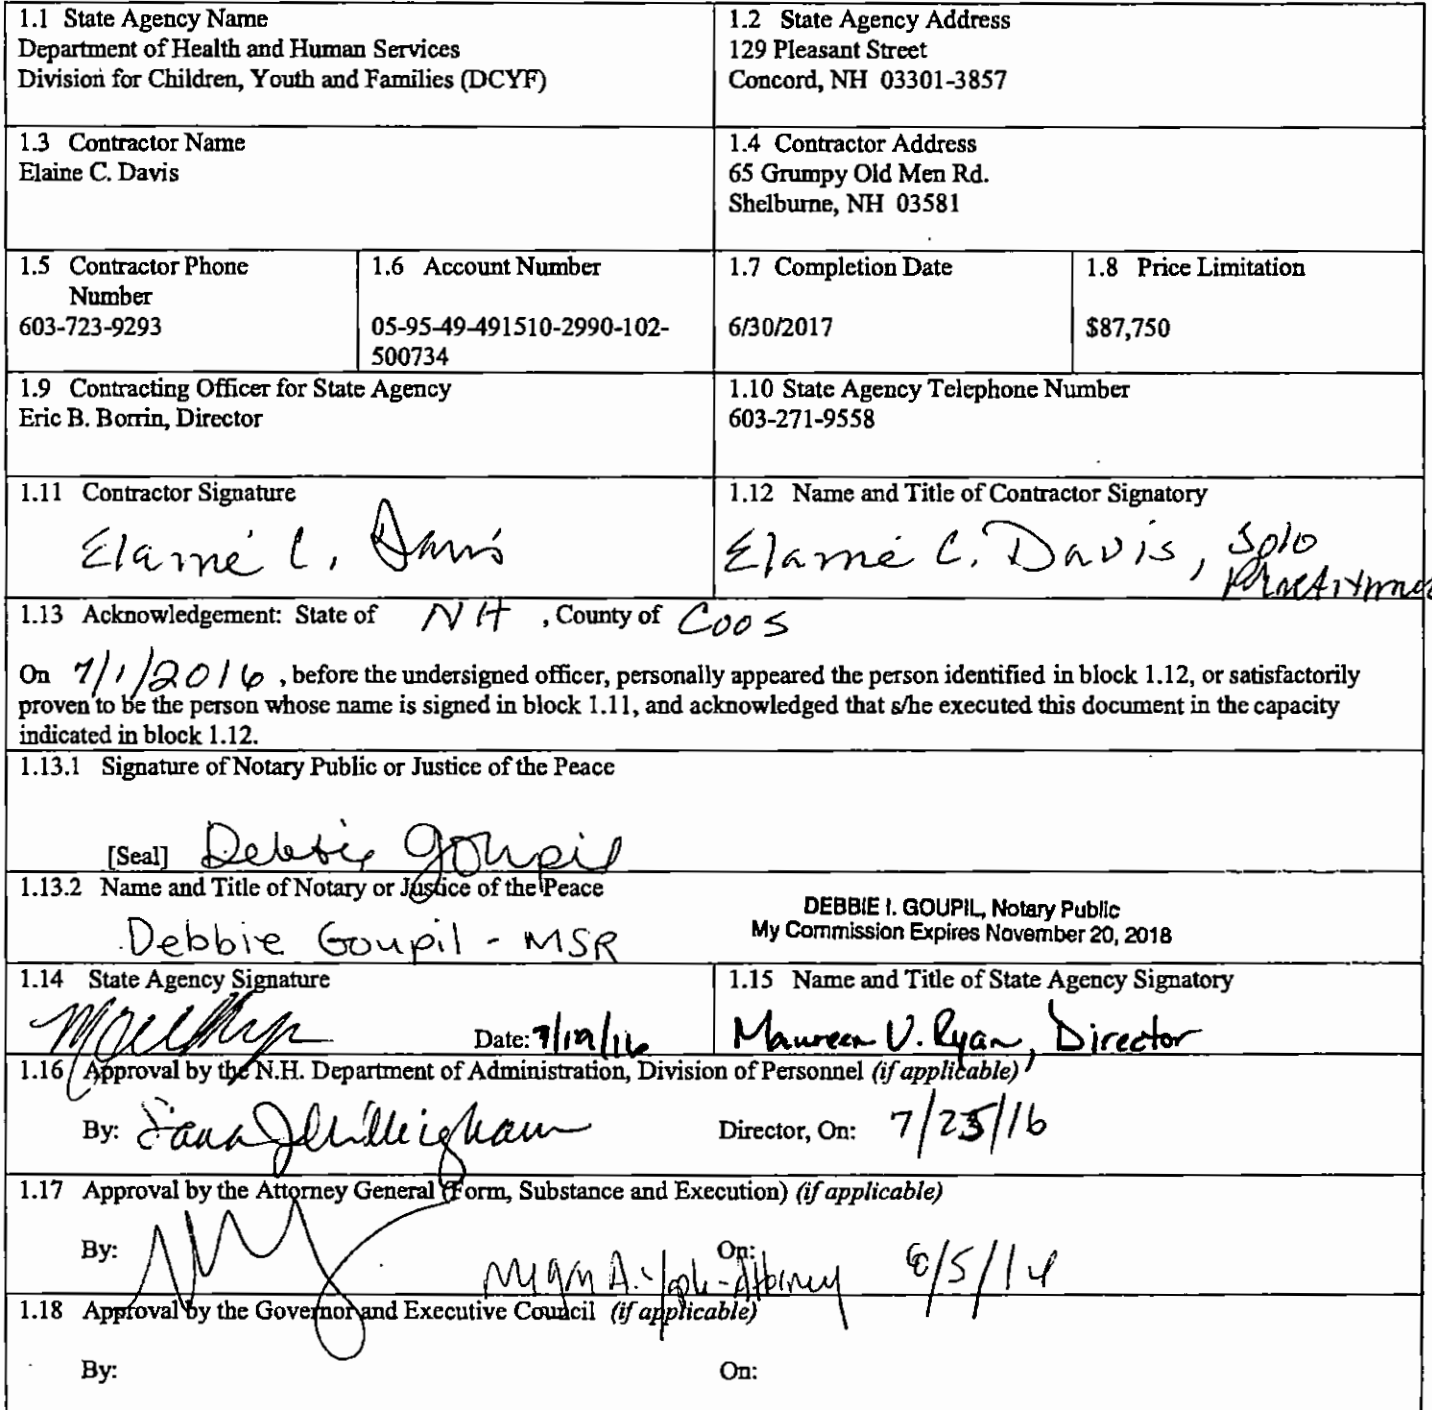 1.1 State Agency Name
Department of Health and Human Services
Division for Children, Youth and Families (DCYF)
1.2 State Agency Address
129 Pleasant Street
Concord, NH 03301-3857
1.3 Contractor Name
Elaine C. Davis
1.4 Contractor Address
65 Grumpy Old Men Rd.
Shelburne, NH 03581
1.5 Contractor Phone
Number
603-723-9293
1.6 Account Number
05-95-49-491510-2990-102-
500734
1.7 Completion Date
6/30/2017
1.8 Price Limitation
$87,750
1.9 Contracting Officer for State Agency
Eric B. Borrin, Director
1.10 State Agency Telephone Number
603-271-9558
1.11 Contractor Signature
Elaine C. Davis
1.12 Name and Title of Contractor Signatory
Elaine C. Davis, Solo
Practitioner
1.13 Acknowledgement: State of NH , County of Coos
On 7/1/2016 , before the undersigned officer, personally appeared the person identified in block 1.12, or satisfactorily
proven to be the person whose name is signed in block 1.11, and acknowledged that s/he executed this document in the capacity
indicated in block 1.12.
1.13.1 Signature of Notary Public or Justice of the Peace
[Seal] Debbie Goupil
1.13.2 Name and Title of Notary or Justice of the Peace
Debbie Goupil - MSR
DEBBIE I. GOUPIL, Notary Public
My Commission Expires November 20, 2018
1.14 State Agency Signature
Date: 7/19/16
1.15 Name and Title of State Agency Signatory
Maureen U. Ryan, Director
1.16 Approval by the N.H. Department of Administration, Division of Personnel (if applicable)
By: Director, On: 7/25/16
1.17 Approval by the Attorney General (Form, Substance and Execution) (if applicable)
By: Megan A. - Attorney On: 8/5/16
1.18 Approval by the Governor and Executive Council (if applicable)
By: On: